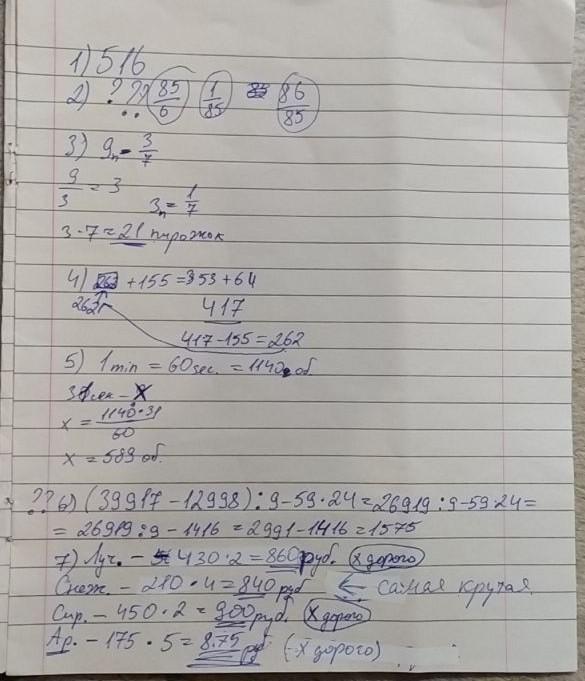 1) 516
2) ??? 85/6 1/85 86/85
3) 9п - 3/7
9/3 = 3 3п = 1/7
3 · 7 = 21 пирожок
4) 262 + 155 = 353 + 64
262 417
417 - 155 = 262
5) 1 min = 60 sec. = 1140 об.
31 сек - X
x = 1140 · 31 / 60
x = 589 об.
?? 6) (39917 - 12998) : 9 - 59 · 24 = 26919 : 9 - 59 · 24 =
= 26919 : 9 - 1416 = 2991 - 1416 = 1575
7) Луч. - 430 · 2 = 860 руб. (x дорого)
Снеж. - 210 · 4 = 840 руб ← самая крутая
Сир. - 450 · 2 = 900 руб. (x дорого)
Ар. - 175 · 5 = 8.75 руб (- x дорого)